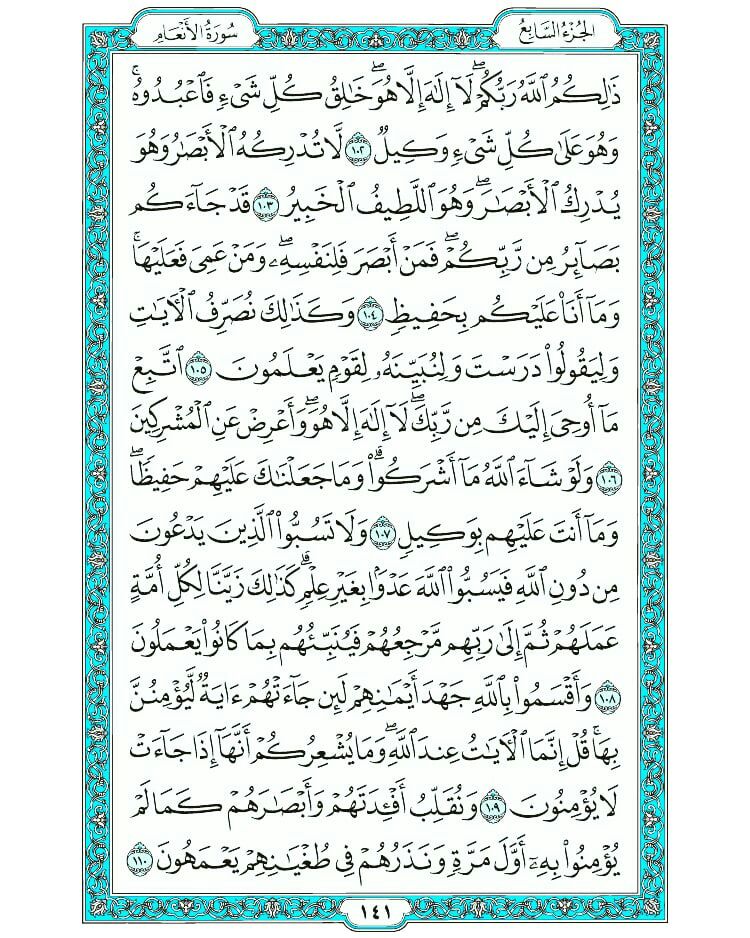 الجزء السابع
سورة الأنعام
ذَٰلِكُمُ ٱللَّهُ رَبُّكُمْۖ لَآ إِلَٰهَ إِلَّا هُوَۖ خَٰلِقُ كُلِّ شَىْءٍ فَٱعْبُدُوهُۚ
وَهُوَ عَلَىٰ كُلِّ شَىْءٍ وَكِيلٌ ١٠٢ لَّا تُدْرِكُهُ ٱلْأَبْصَٰرُ وَهُوَ
يُدْرِكُ ٱلْأَبْصَٰرَۖ وَهُوَ ٱللَّطِيفُ ٱلْخَبِيرُ ١٠٣ قَدْ جَآءَكُم
بَصَآئِرُ مِن رَّبِّكُمْۖ فَمَنْ أَبْصَرَ فَلِنَفْسِهِۦۖ وَمَنْ عَمِىَ فَعَلَيْهَاۚ
وَمَآ أَنَا۠ عَلَيْكُم بِحَفِيظٍ ١٠٤ وَكَذَٰلِكَ نُصَرِّفُ ٱلْءَايَٰتِ
وَلِيَقُولُوا۟ دَرَسْتَ وَلِنُبَيِّنَهُۥ لِقَوْمٍ يَعْلَمُونَ ١٠٥ ٱتَّبِعْ
مَآ أُوحِىَ إِلَيْكَ مِن رَّبِّكَۖ لَآ إِلَٰهَ إِلَّا هُوَۖ وَأَعْرِضْ عَنِ ٱلْمُشْرِكِينَ
١٠٦ وَلَوْ شَآءَ ٱللَّهُ مَآ أَشْرَكُوا۟ۗ وَمَا جَعَلْنَٰكَ عَلَيْهِمْ حَفِيظًاۖ
وَمَآ أَنتَ عَلَيْهِم بِوَكِيلٍ ١٠٧ وَلَا تَسُبُّوا۟ ٱلَّذِينَ يَدْعُونَ
مِن دُونِ ٱللَّهِ فَيَسُبُّوا۟ ٱللَّهَ عَدْوًۢا بِغَيْرِ عِلْمٍۗ كَذَٰلِكَ زَيَّنَّا لِكُلِّ أُمَّةٍ
عَمَلَهُمْ ثُمَّ إِلَىٰ رَبِّهِم مَّرْجِعُهُمْ فَيُنَبِّئُهُم بِمَا كَانُوا۟ يَعْمَلُونَ
١٠٨ وَأَقْسَمُوا۟ بِٱللَّهِ جَهْدَ أَيْمَٰنِهِمْ لَئِن جَآءَتْهُمْ ءَايَةٌ لَّيُؤْمِنُنَّ
بِهَاۚ قُلْ إِنَّمَا ٱلْءَايَٰتُ عِندَ ٱللَّهِۖ وَمَا يُشْعِرُكُمْ أَنَّهَآ إِذَا جَآءَتْ
لَا يُؤْمِنُونَ ١٠٩ وَنُقَلِّبُ أَفْـِٔدَتَهُمْ وَأَبْصَٰرَهُمْ كَمَا لَمْ
يُؤْمِنُوا۟ بِهِۦٓ أَوَّلَ مَرَّةٍ وَنَذَرُهُمْ فِى طُغْيَٰنِهِمْ يَعْمَهُونَ ١١٠
١٤١